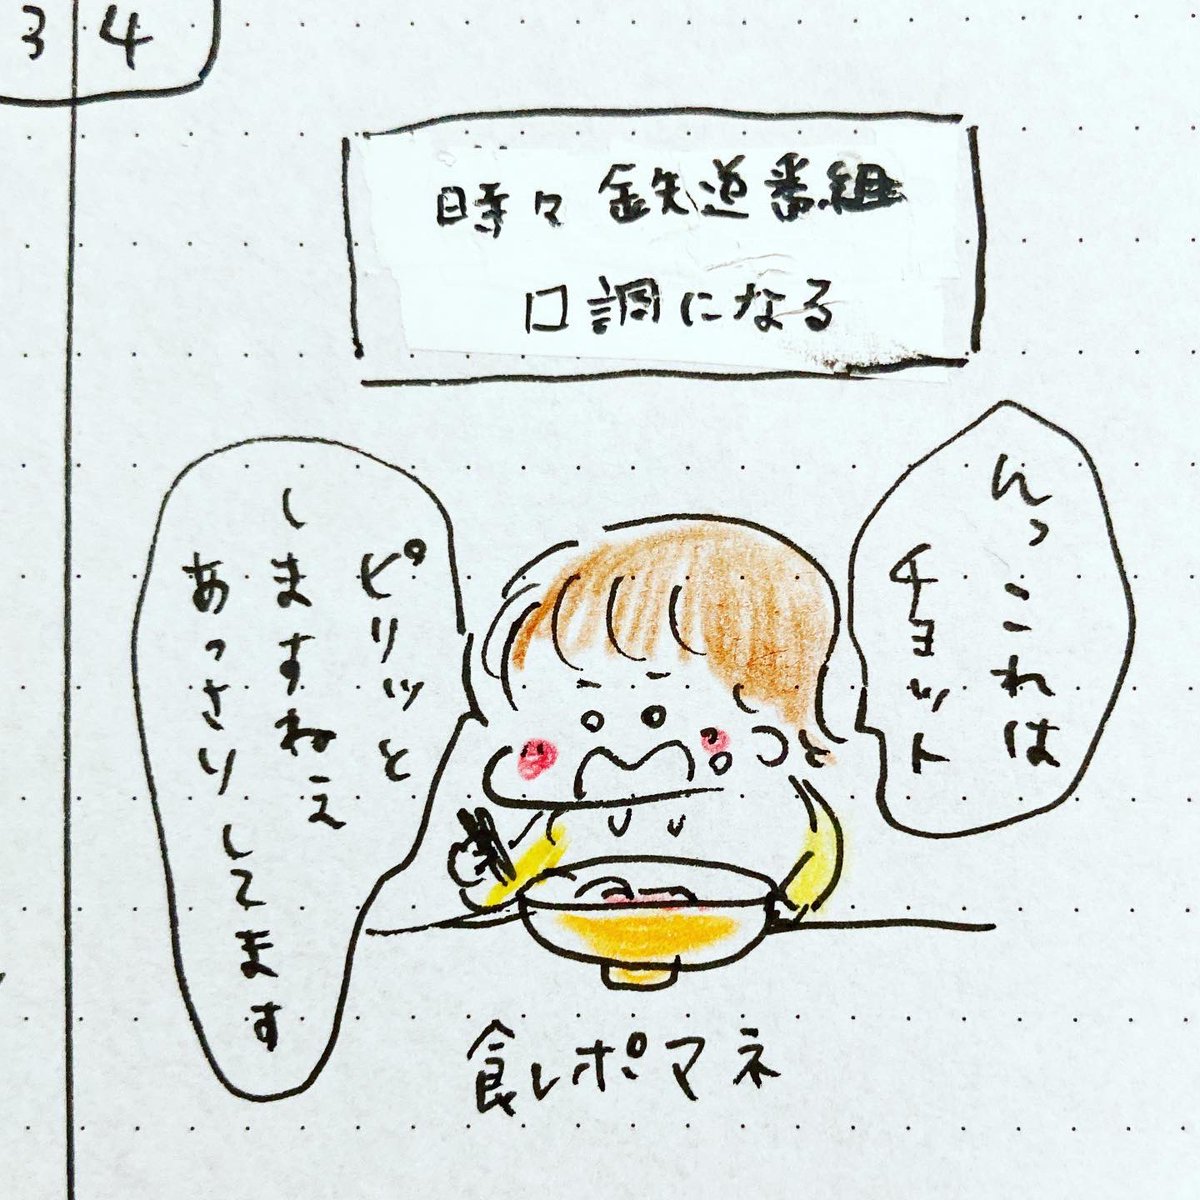 3 4
時々鉄道番組
口調になる
んっこれは
チョット
ピリッと
しますねえ
あっさりしてます
食レポマネ